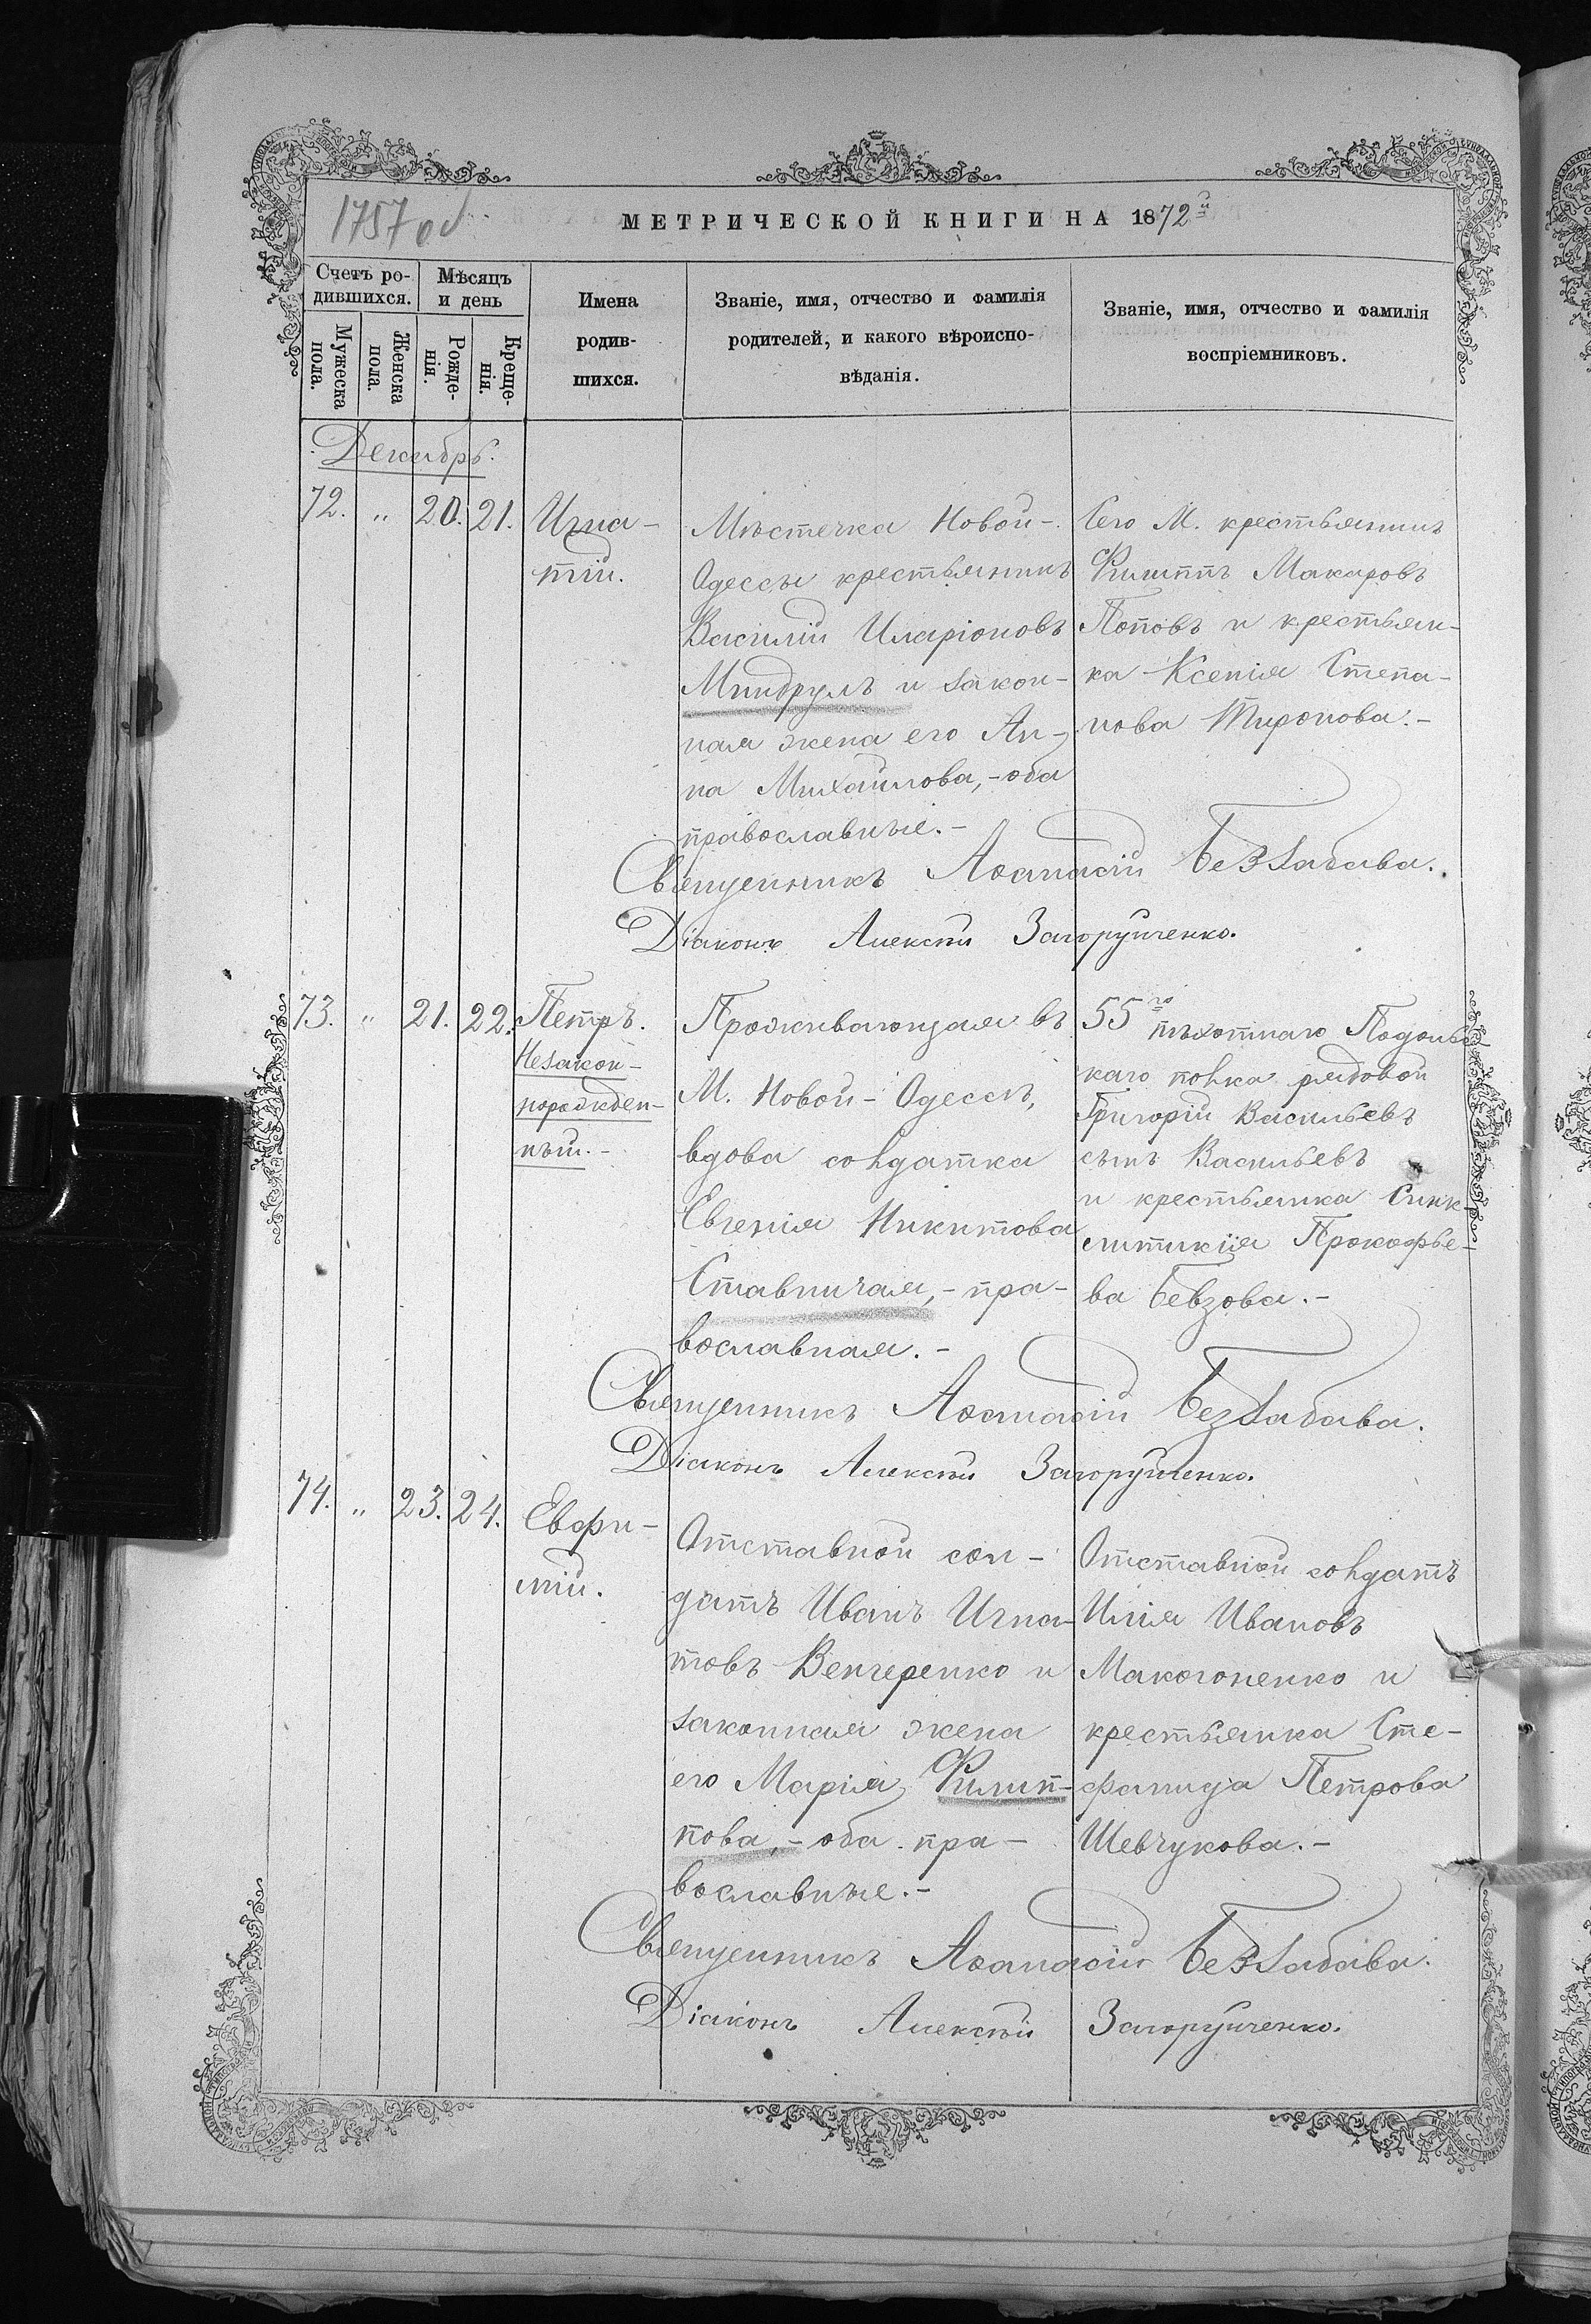 1757 об
МЕТРИЧЕСКОЙ КНИГИ НА 1872й
Счетъ ро-
дившихся.
Мѣсяцъ
и день
Имена
родив-
шихся.
Званіе, имя, отчество и фамилія
родителей, и какого вѣроиспо-
вѣданія.
Званіе, имя, отчество и фамилія
воспріемниковъ.
Мужеска
пола.
Женска
пола.
Рожде-
нія.
Креще-
нія.
Декабрь.
72. " 20. 21.
Игна-
тій.
Мѣстечка Новой-
Одессы крестьянинъ
Василій Иларіоновъ
Миндрулъ и закон-
ная жена его Ан-
на Михайлова,- оба
православные.-
Сего М. крестьянинъ
Филиппъ Макаровъ
Поповъ и крестьян-
ка Ксенія Степа-
нова Тиронова.-
Священникъ Аѳанасій Беззабава.
Діаконъ Алексѣй Загоруйченко.
73. " 21. 22.
Петръ.
Незакон-
норожден-
ный.-
Проживающая въ
М. Новой-Одессѣ,
вдова солдатка
Евгенія Никитова
Ставничая,- пра-
вославная.-
55го пѣхотнаго Подольс-
каго полка рядовой
Григорій Васильевъ
сынъ Васильевъ
и крестьянка Синк-
литикія Прокофье-
ва Бевзова.-
Священникъ Аѳанасій Беззабава.
Діаконъ Алексѣй Загоруйченко.
74. " 23. 24.
Евфи-
мій.
Отставной сол-
датъ Иванъ Игна-
товъ Венгеренко и
законная жена
его Марія Филип-
пова,- оба пра-
вославные.-
Отставной солдатъ
Илія Ивановъ
Макогоненко и
крестьянка Сте-
фанида Петрова
Шевчукова.-
Священникъ Аѳанасій Беззабава.
Діаконъ Алексѣй Загоруйченко.